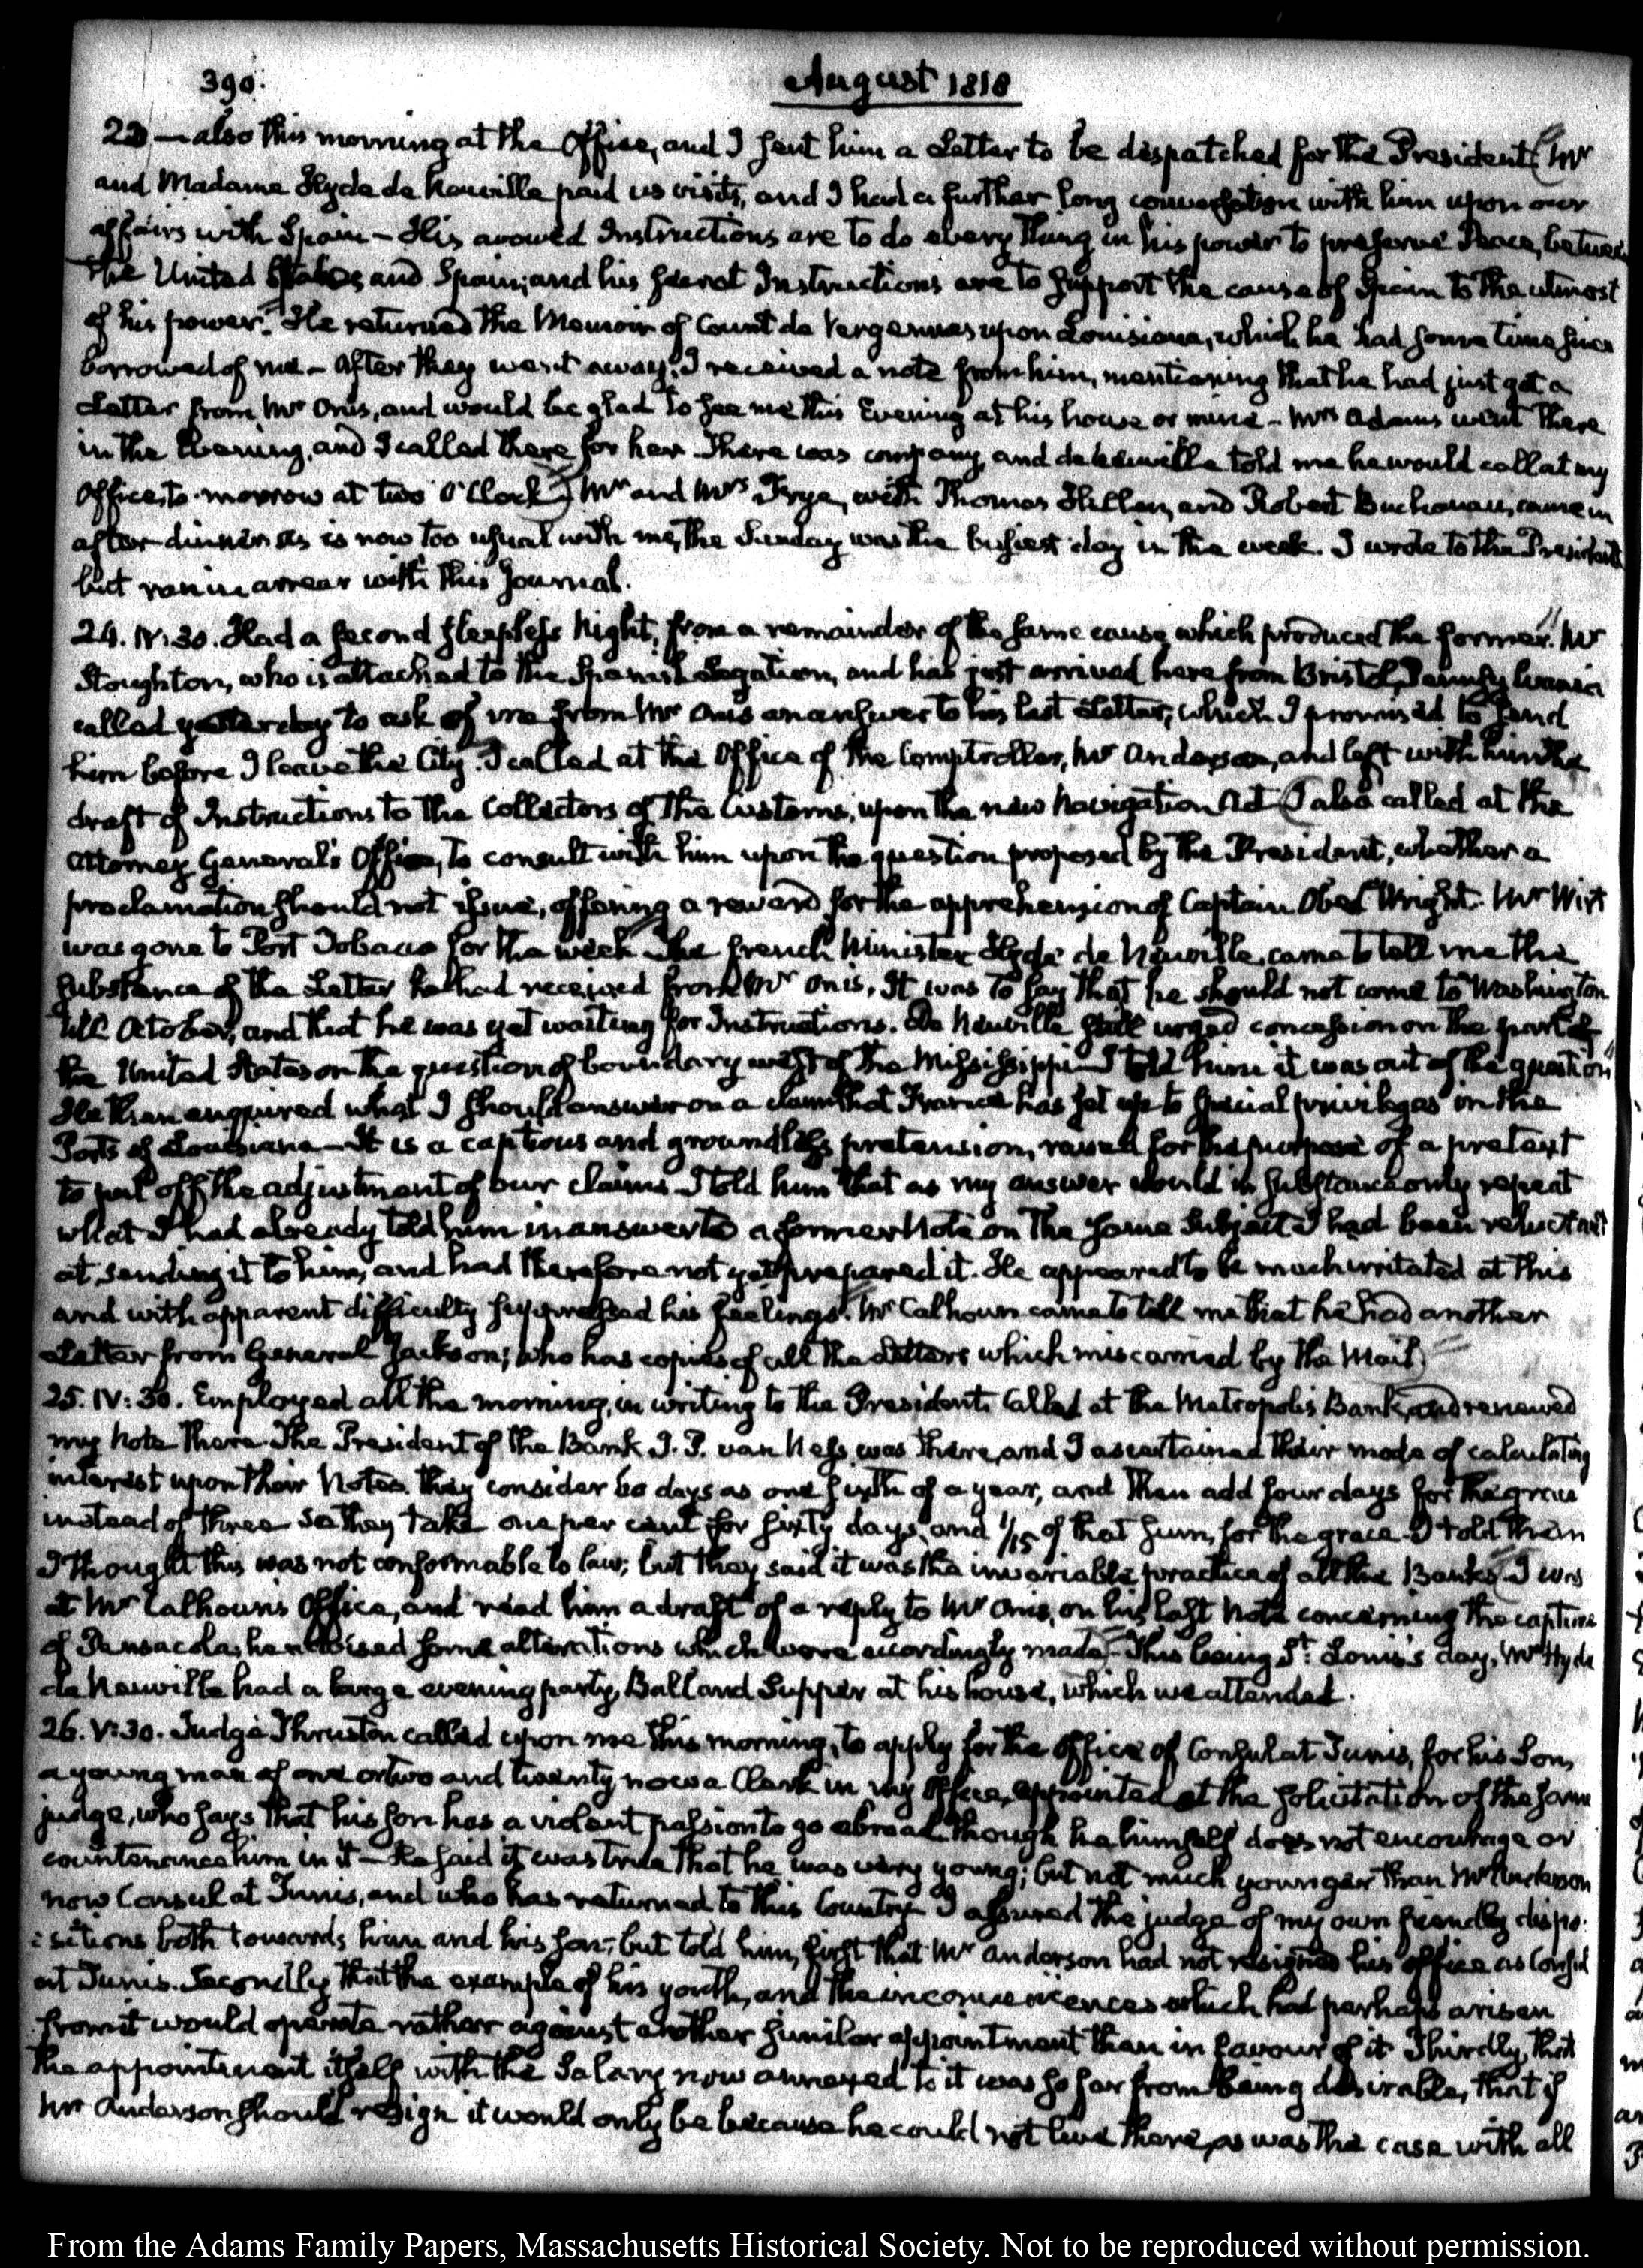 390.
August 1818
23 — also this morning at the Office, and I sent him a Letter to be dispatched for the President. (Mr
and Madame Hyde de Neuville paid us visits, and I had a further long conversation with him upon our
affairs with Spain — His avowed Instructions are to do every thing in his power to preserve Peace, between
the United States and Spain; and his secret Instructions are to support the cause of Spain to the utmost
of his power. He returned the Memoir of Count de Vergennes upon Louisiana, which he had some time since
borrowed of me — After they went away, I received a note from him, mentioning that he had just got a
Letter from Mr Onis, and would be glad to see me this Evening at his house or mine — Mrs Adams went there
in the Evening, and I called there for her. There was company, and de Neuville told me he would call at my
Office, to-morrow at two O'Clock) Mr and Mrs Frye, with Thomas Hellen, and Robert Buchanan, came in
after dinner. As is now too usual with me, the Sunday was the busiest day in the week. I wrote to the President
but ran in arrear with this Journal.
24. IV:30. Had a second sleepless Night, from a remainder of the same cause which produced the former. Mr
Stoughton, who is attached to the Spanish Legation, and has just arrived here from Bristol, Pennsylvania
called yesterday to ask of me from Mr Onis an answer to his last Letter, which I promised to send
him before I leave the City. I called at the Office of the Comptroller, Mr Anderson, and left with him the
draft of Instructions to the Collectors of the Customs, upon the new Navigation Act (I also called at the
Attorney General's Office, to consult with him upon the question proposed by the President, whether a
proclamation should not issue, offering a reward for the apprehension of Captain Obed Wright. Mr Wirt
was gone to Port Tobacco for the week. The French Minister Hyde de Neuville, came to tell me the
substance of the Letter he had received from Mr Onis. It was to say that he should not come to Washington
till October, and that he was yet waiting for Instructions. De Neuville still urged concession on the part of
the United States on the question of boundary west of the Mississippi — I told him it was out of the question
He then enquired what I should answer on a claim that France has set up to special privileges in the
Ports of Louisiana — It is a captious and groundless pretension, raised for the purpose of a pretext
to put off the adjustment of our claims. I told him that as my answer would in substance only repeat
what I had already told him in answer to a former Note on the same Subject I had been reluctant
at sending it to him, and had therefore not yet prepared it. He appeared to be much irritated at this
and with apparent difficulty suppressed his feelings. Mr Calhoun came to tell me that he had another
Letter from General Jackson; who has copies of all the Letters which miscarried by the Mail)
25. IV:30. Employed all the morning, in writing to the President. Called at the Metropolis Bank, and renewed
my Note there. The President of the Bank J. P. van Ness was there, and I ascertained their mode of calculating
interest upon their Notes. they consider 60 days as one sixth of a year, and then add four days for the grace
instead of three. So they take one per cent for sixty days, and 1/15 of that sum, for the grace. I told them
I thought this was not conformable to law; but they said it was the invariable practice of all the Banks. I was
at Mr Calhoun's Office, and read him a draft of a reply to Mr Onis, on his last Note concerning the capture
of Pensacola; he advised some alterations which were accordingly made — This being St: Louis's day, Mr Hyde
de Neuville had a large evening party, Ball and Supper at his house, which we attended.
26. V:30. Judge Thruston called upon me this morning, to apply for the Office of Consul at Tunis, for his Son,
a young man of one or two and twenty now a Clerk in my Office, appointed at the solicitation of the same
judge, who says that his son has a violent passion to go abroad though he himself does not encourage or
countenance him in it — He said it was true that he was very young; but not much younger than Mr Anderson
now Consul at Tunis, and who has returned to this Country. I assured the judge of my own friendly dispo-
sitions both towards him and his son; but told him, first that Mr Anderson had not resigned his office as Consul
at Tunis. Secondly that the example of his youth, and the inconveniences which had perhaps arisen
from it would operate rather against another similar appointment than in favour of it. Thirdly, that
the appointment itself with the Salary now annexed to it was so far from being desirable, that if
Mr Anderson should resign it would only be because he could not live there, as was the case with all
From the Adams Family Papers, Massachusetts Historical Society. Not to be reproduced without permission.